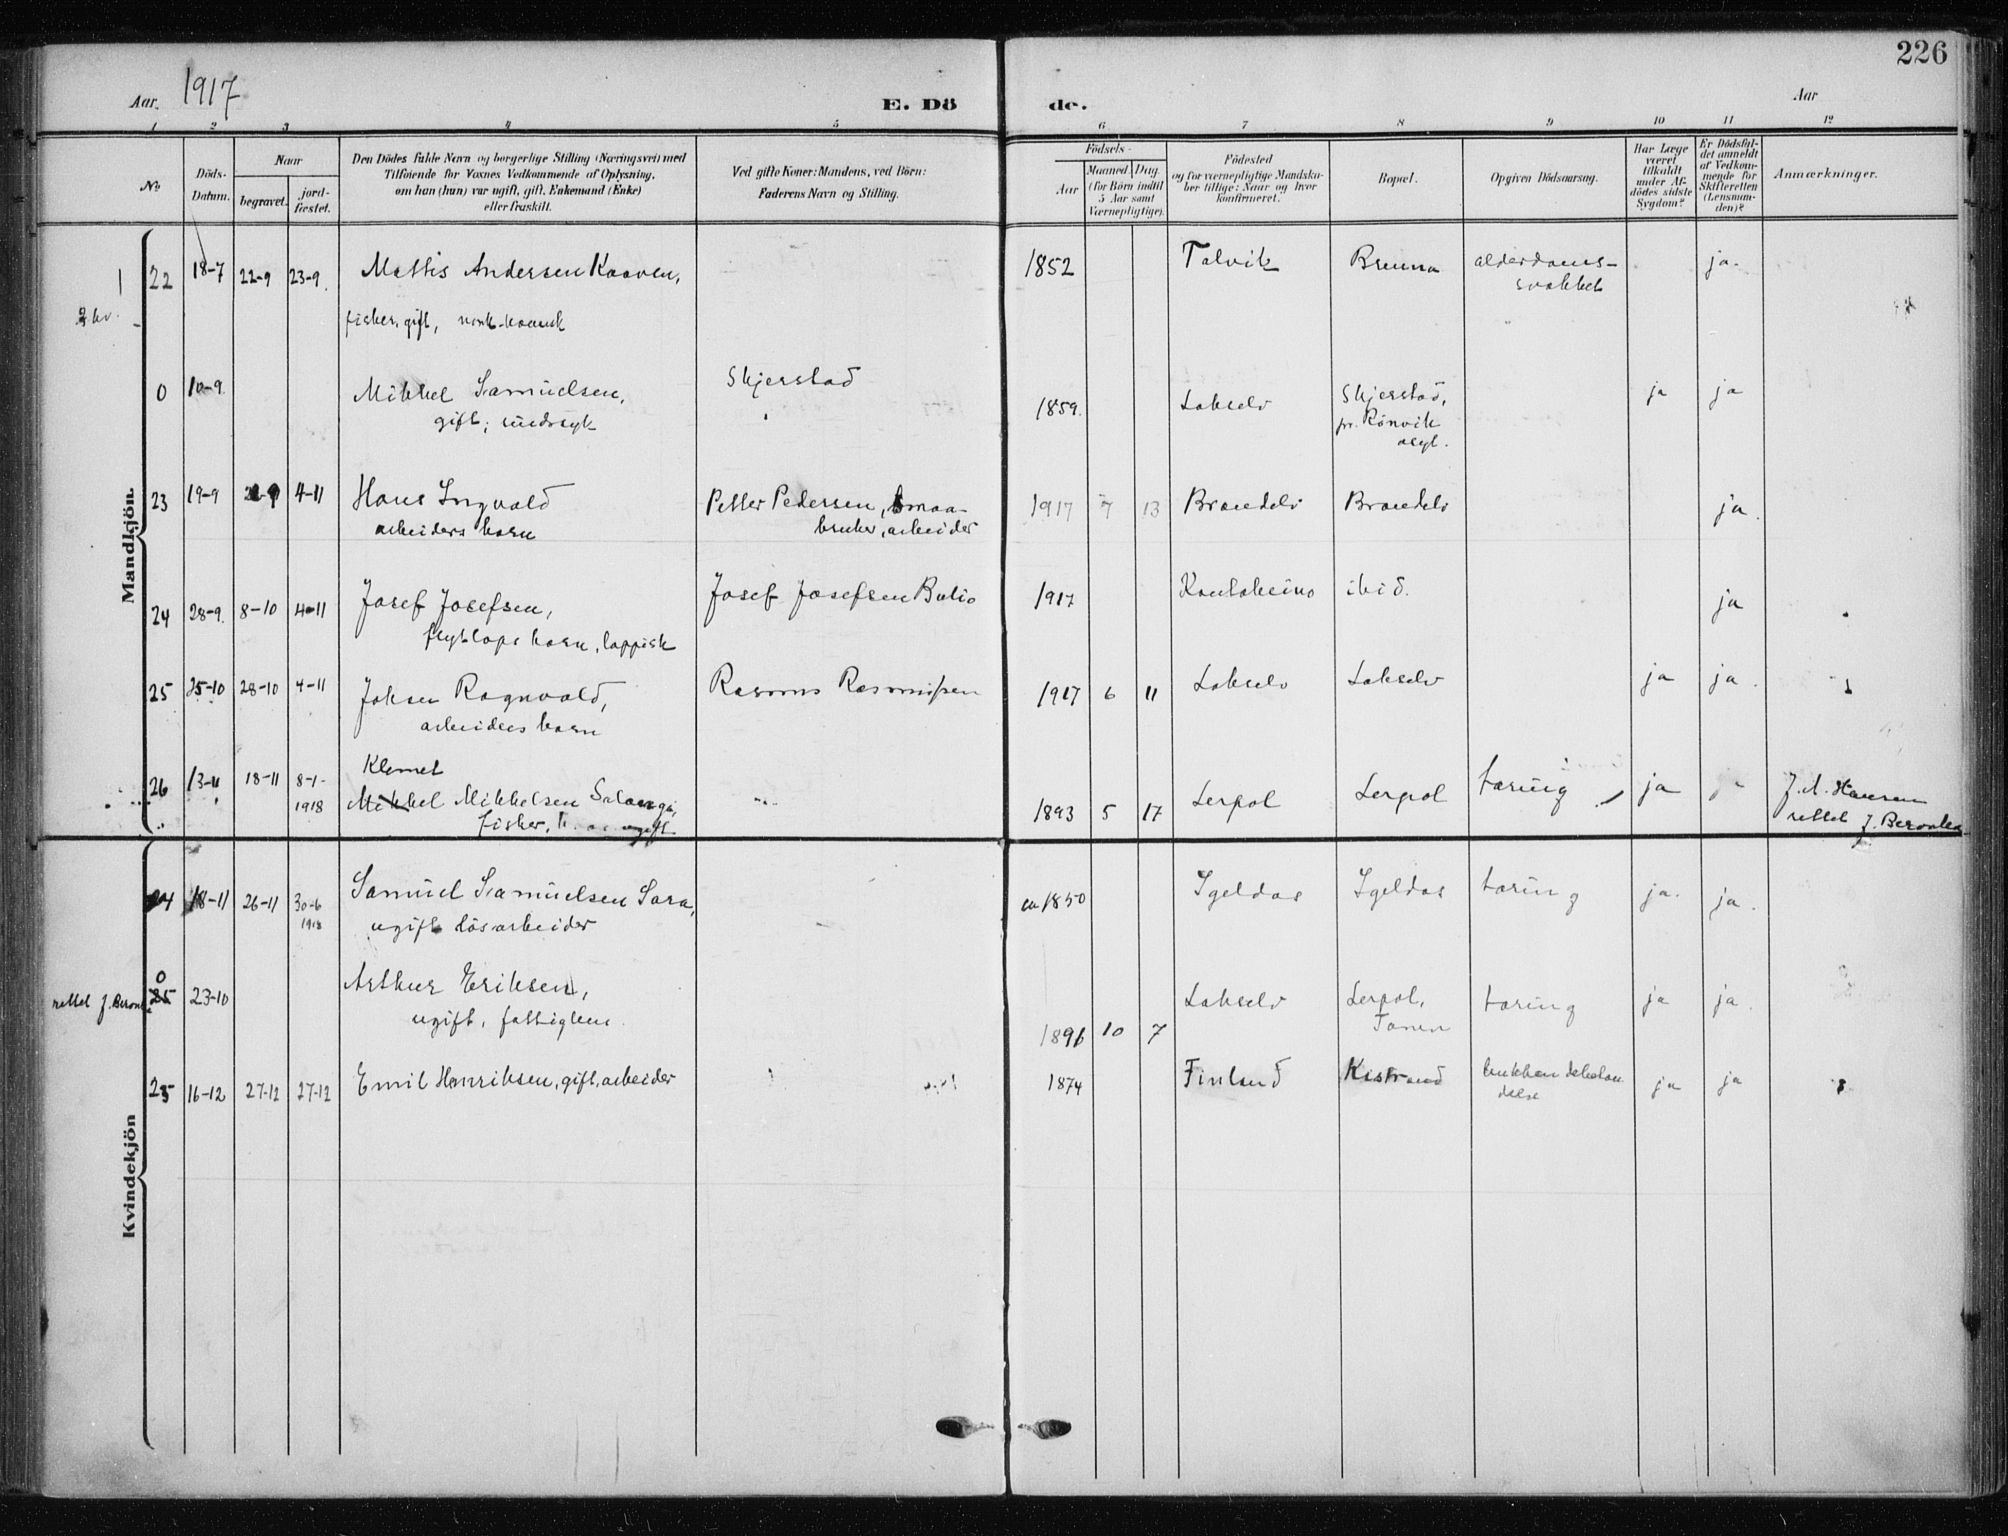 226
Aar. 1917
E. Dö de.
Aar
1 2 3 4 5 6 7 8 9 10 11 12
No
Döds-
Datum.
Naar
begravet.
jord-
fæstet.
Den Dödes fulde Navn og borgerlige Stilling (Næringsvei) med
Tilföiende for Voxnes Vedkommende af Oplysning,
om han (hun) var ugift, gift, Enkemand (Enke)
eller fraskilt.
Ved gifte Koner: Mandens, ved Börn:
Faderens Navn og Stilling.
Födsels-
Aar
Maaned. Dag.
(for Börn indtil
5 Aar samt
Værnepligtige).
Födested
og for værnepligtige Mandska-
ber tillige: Naar og hvor
konfirmeret.
Bopæl.
Opgiven Dödsaarsag.
Har Læge
været
tilkaldt
under Af-
dødes sidste
Sygdom?
Er Dödsfal-
det anmeldt
af Vedkom-
mende for
Skifteretten
(Lensman-
den)?
Anmærkninger.
Mandkjön.
22 18-7 22-9 23-9. Mathis Andersen Kaaven, 1852 Talvik Brenna alderdoms- ja.
svakhet
fisker, gift, norsk-kvensk
0 10-9. Mikkel Samuelsen, Skjerstad 1859. Lakselv Skjerstad, ja ja
gift, sindssyk pr. Rönvik
asyl.
23 19-9 4-11 Hans Ingvald Petter Pedersen, smaa- 1917 7 13 Brandelv Brandelv ja.
arbeiders barn bruker, arbeider
24 28-9. 8-10 4-11 Josef Josefsen, Josef Josefsen Bulio 1917 Kautokeino ibid. ja
flytlaps barn, lappisk
25 25-10 28-10 4-11 Johan Ragnvald, Rasmus Rasmussen 1917 6 11 Lakselv Lakselv ja ja.
arbeiders barn
Klemet
26 13-11 18-11 8-1- Mikkel Mikkelsen 1893 5 17 Lerpol Lerpol tæring ja ja J. A. Hansen
1918 fisker, ugift rettet J.
Kvindekjön
24 18-11 26-11 30-6 Samuel Samuelsen Sara, ca 1850 Igeldas Igeldas tæring ja. ja.
1918 ugift lösarbeider
0
rettet J. 25 23-10 Arthur Eriksen, 1896 10 7 Lakselv Lerpol, tæring ja ja.
ugift, fattiglem. Tanen
25 16-12 27-12 27-12 Emil Henriksen, gift, arbeider 1874 Finland Kistrand ja ja